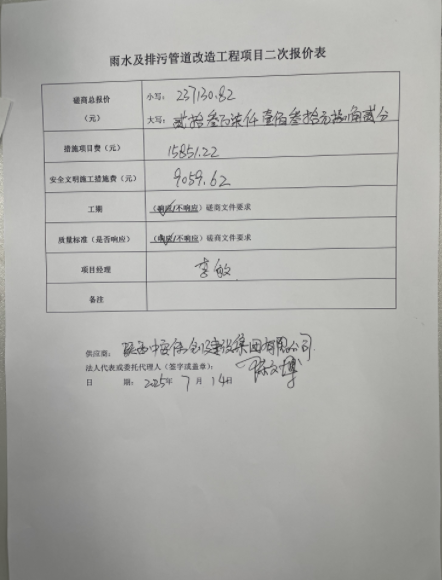 雨水及排污管道改造工程项目二次报价表
磋商总报价
（元）
小写：237130.82
大写：贰拾叁万柒仟壹佰叁拾元捌角贰分
措施项目费（元）
15851.22
安全文明施工措施费（元）
9059.62
工期
（响应/不响应）磋商文件要求
质量标准（是否响应）
（响应/不响应）磋商文件要求
项目经理
李敏
备注
供应商：陕西中安伟创建设集团有限公司
法人代表或委托代理人（签字或盖章）：
日 期：2025年 7 月 14日